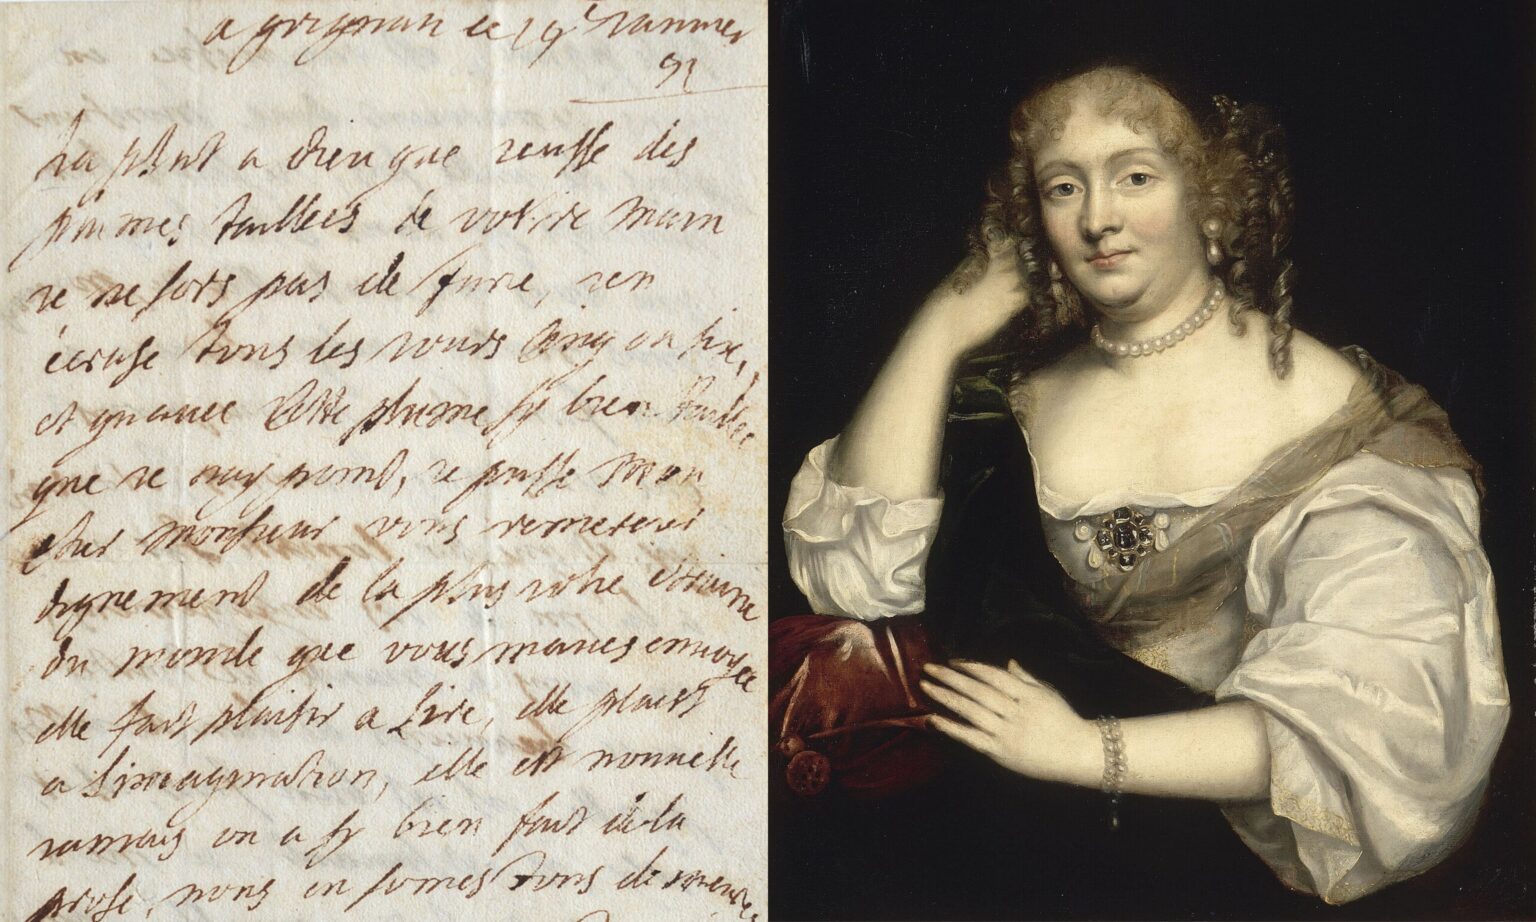 a grignan ce 19e janvier
91
ha plut a dieu que jeusse des
plumes taillees de vostre main
je ne serois pas de furie, jen
écrase tous les jours cinq ou six,
et quavec cette plume sy bien taillee
que je nay point, je pusse mon
cher monsieur vous remercier
dignement de la plus
du monde que vous maves envoyee
elle fait plaisir a Lire, elle plaist
a Limagination, elle est nouvelle
jamais on a sy bien fait de la
prose, nous en somes tous